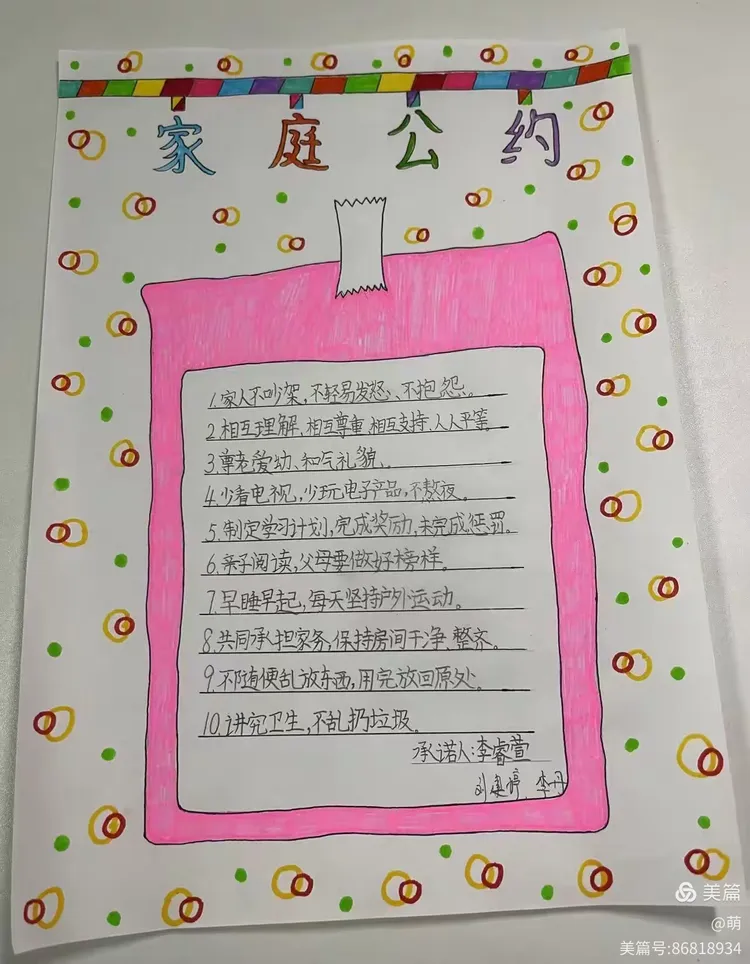 家庭公约
1.家人不吵架,不轻易发怒、不抱怨。
2.相互理解、相互尊重、相互支持、人人平等。
3.尊老爱幼、和气礼貌、
4.少看电视,少玩电子产品,不熬夜。
5.制定学习计划,完成奖励,未完成惩罚。
6.亲子阅读,父母要做好榜样。
7.早睡早起,每天坚持户外运动。
8.共同承担家务,保持房间干净、整齐。
9.不随便乱放东西,用完放回原处。
10.讲究卫生,不乱扔垃圾。
承诺人:李睿萱
李丹
美篇
@萌
美篇号:86818934